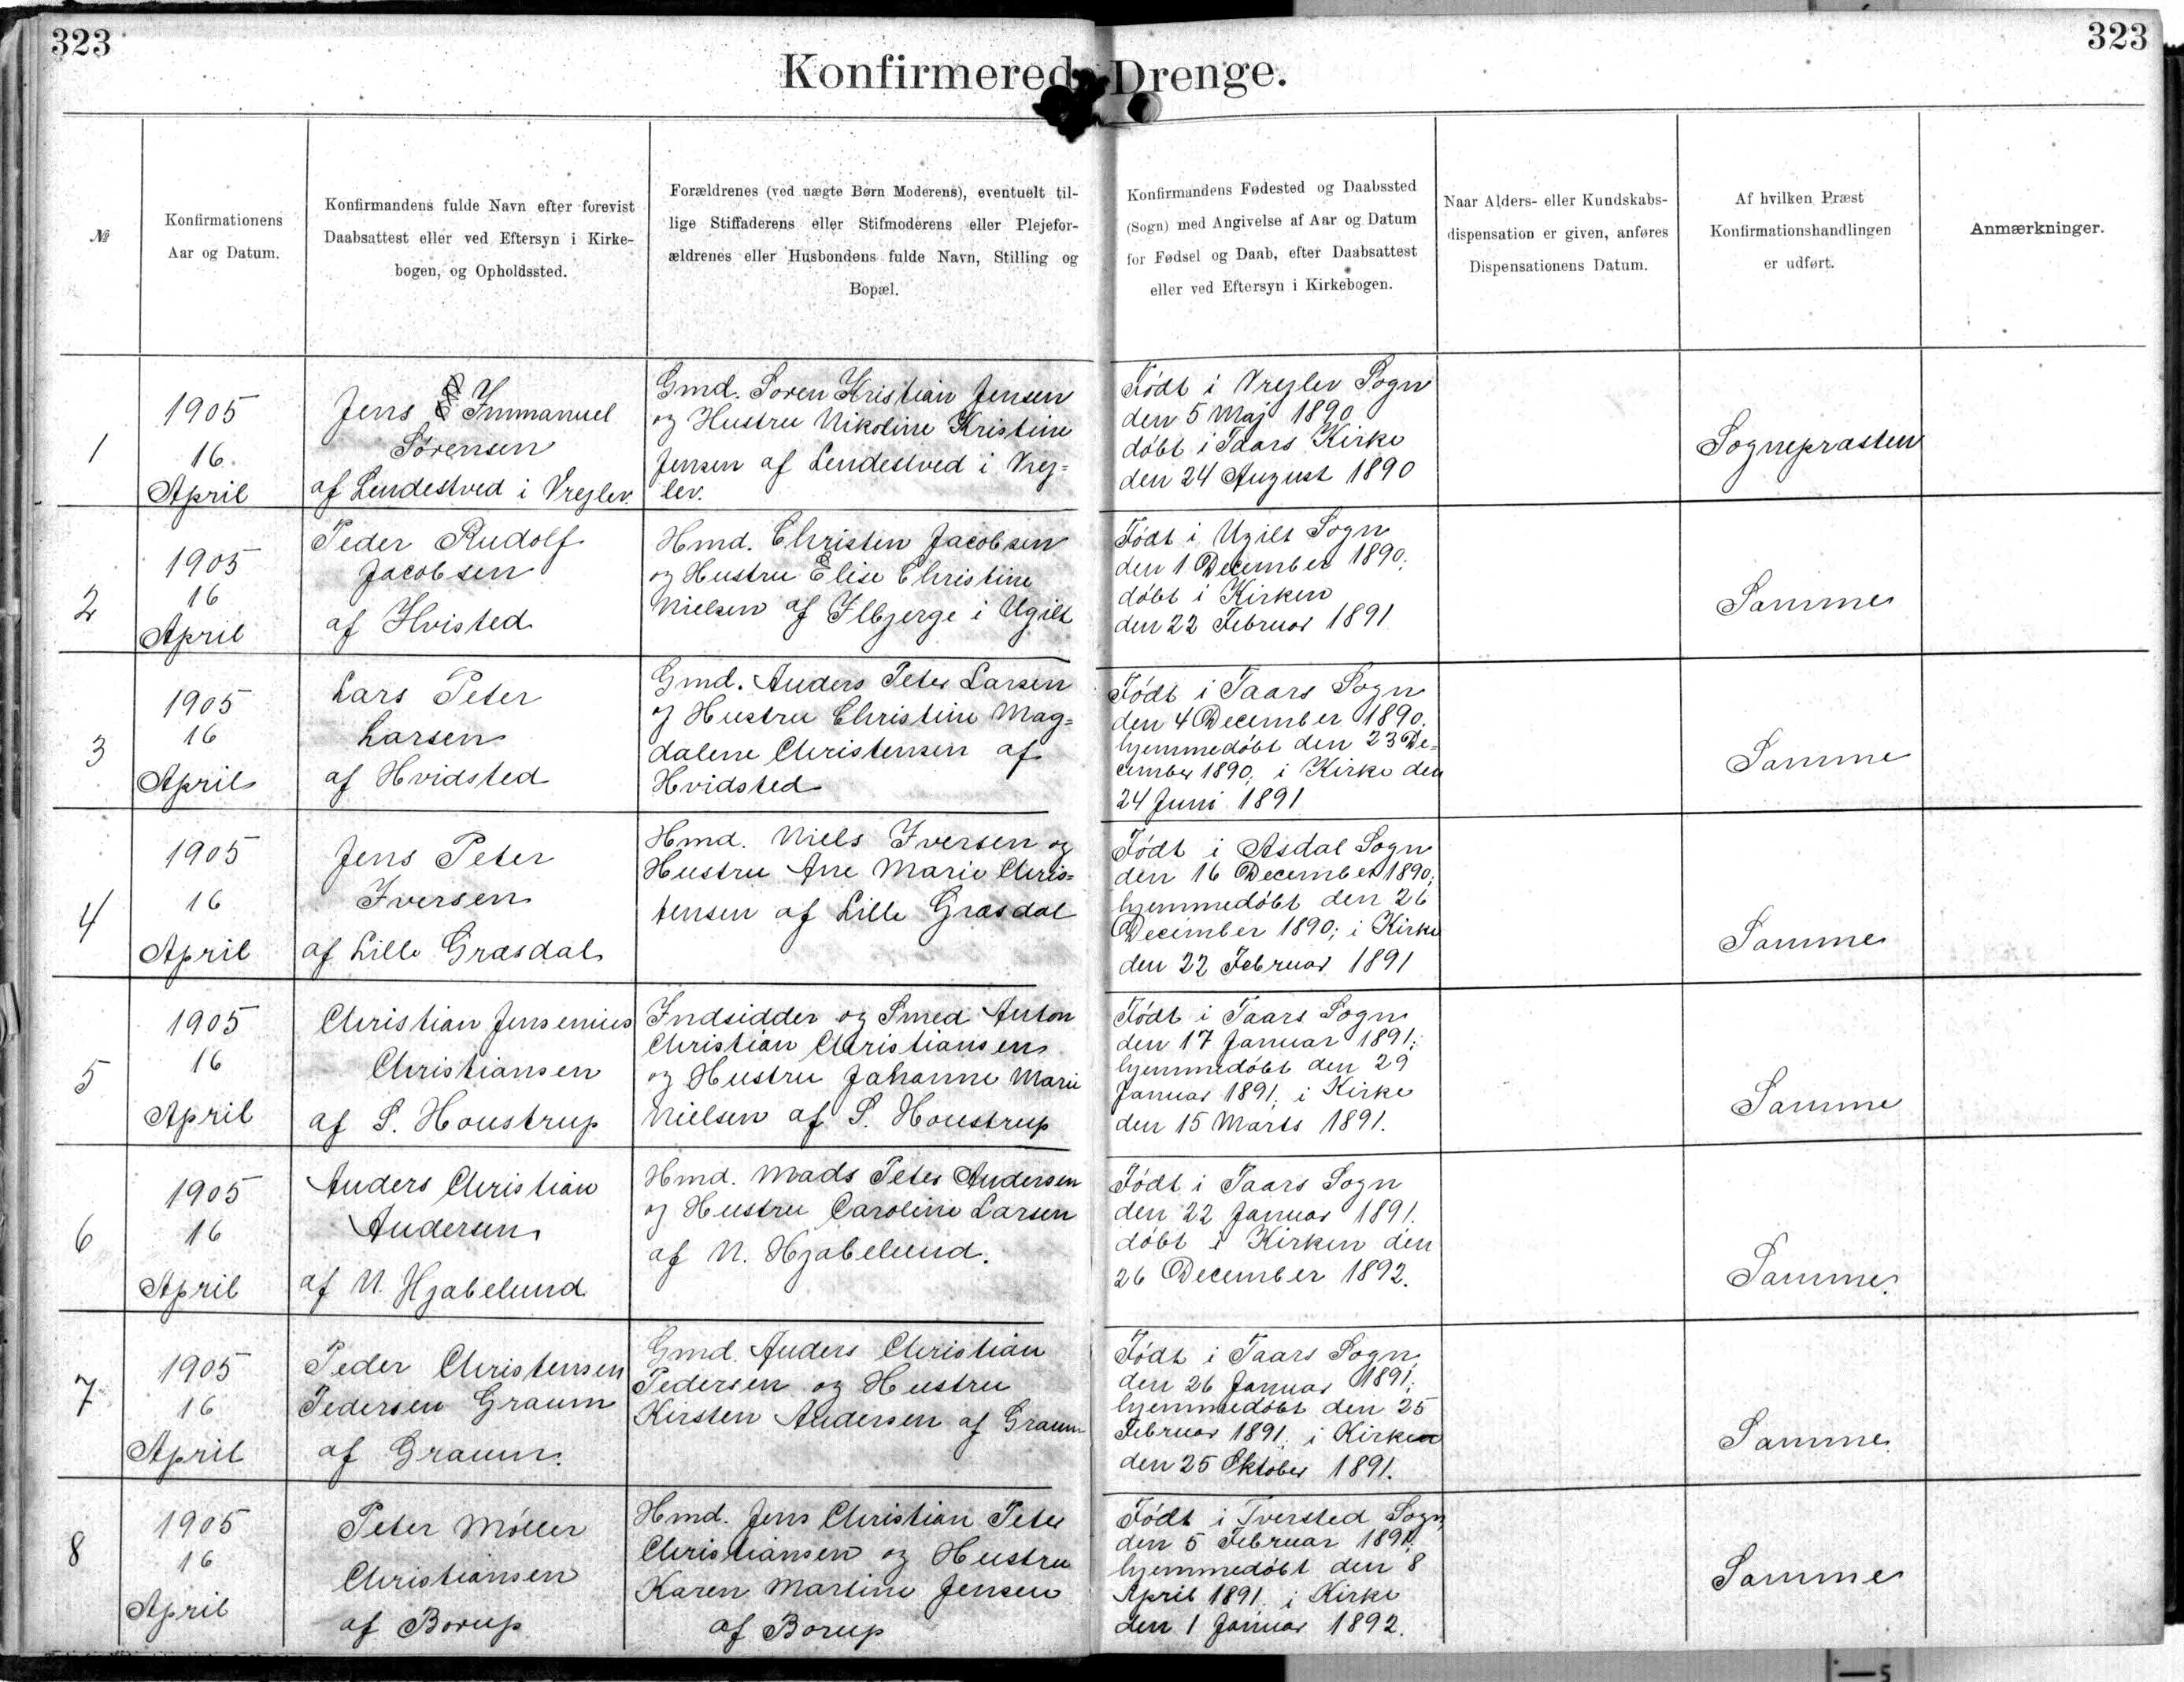 323
323
Konfirmerede Drenge.
№
Konfirmationens
Aar og Datum.
Konfirmandens fulde Navn efter forevist
Daabsattest eller ved Eftersyn i Kirke-
bogen, og Opholdssted.
Forældrenes (ved uægte Børn Moderens), eventuelt til-
lige Stiffaderens eller Stifmoderens eller Plejefor-
ældrenes eller Husbondens fulde Navn, Stilling og
Bopæl.
Konfirmandens Fødested og Daabssted
(Sogn) med Angivelse af Aar og Datum
for Fødsel og Daab, efter Daabsattest
eller ved Eftersyn i Kirkebogen.
Naar Alders- eller Kundskabs-
dispensation er given, anføres
Dispensationens Datum.
Af hvilken Præst
Konfirmationshandlingen
er udført.
Anmærkninger.
1
1905
16
April
Jens Immanuel
Sørensen
af Lendestved i Vrejlev.
Gmd. Soren Kristian Jensen
og Hustru Nikoline Kristine
Jensen af Lendestved i Vrej=
lev.
Födt i Vrejlev Sogn
den 5 Maj 1890
döbt i Taars Kirke
den 24 August 1890
Sognepræsten
2
1905
16
April
Peder Rudolf
Jacobsen
af Hvisted
Hmd. Christen Jacobsen
og Hustru Elise Christine
Nielsen af Ilbjerge i Ugilt
Födt i Ugilt Sogn
den 1 December 1890;
döbt i Kirken
den 22 Februar 1891
Samme
3
1905
16
April
Lars Peter
Larsen
af Hvidsted
Gmd. Anders Peter Larsen
og Hustru Christine Mag=
dalene Christensen af
Hvidsted
Födt i Taars Sogn
den 4 December 1890.
hjemmedöbt den 23 De=
cember 1890; i Kirke den
24 Juni 1891
Samme
4
1905
16
April
Jens Peter
Iversen
af Lille Græsdal
Hmd. Niels Iversen og
Hustru Ane Marie Chris=
tensen af Lille Græsdal
Födt i Asdal Sogn
den 16 December 1890;
hjemmedöbt den 26
December 1890; i Kirke
den 22 Februar 1891
Samme
5
1905
16
April
Christian Jensenius
Christiansen
af S. Houstrup
Indsidder og Smed Anton
Christian Christiansen
og Hustru Johanne Marie
Nielsen af S. Houstrup
Födt i Taars Sogn
den 17 Januar 1891;
hjemmedöbt den 29
Januar 1891; i Kirke
den 15 Marts 1891.
Samme
6
1905
16
April
Anders Christian
Andersen
af N. Hjabelund
Hmd. Mads Peter Andersen
og Hustru Caroline Larsen
af N. Hjabelund.
Födt i Taars Sogn
den 22 Januar 1891.
döbt i Kirken den
26 December 1892.
Samme.
7
1905
16
April
Peder Christensen
Pedersen Graum
af Graum.
Gmd. Anders Christian
Pedersen og Hustru
Kirsten Andersen af Graum
Födt i Taars Sogn
den 26 Januar 1891;
hjemmedöbt den 25
Februar 1891; i Kirken
den 25 Oktober 1891.
Samme
8
1905
16
April
Peter Möller
Christiansen
af Borup
Hmd. Jens Christian Peter
Christiansen og Hustru
Karen Martine Jensen
af Borup
Födt i Tversted Sogn
den 5 Februar 1891;
hjemmedöbt den 8
April 1891. i Kirke
den 1 Januar 1892.
Samme
5